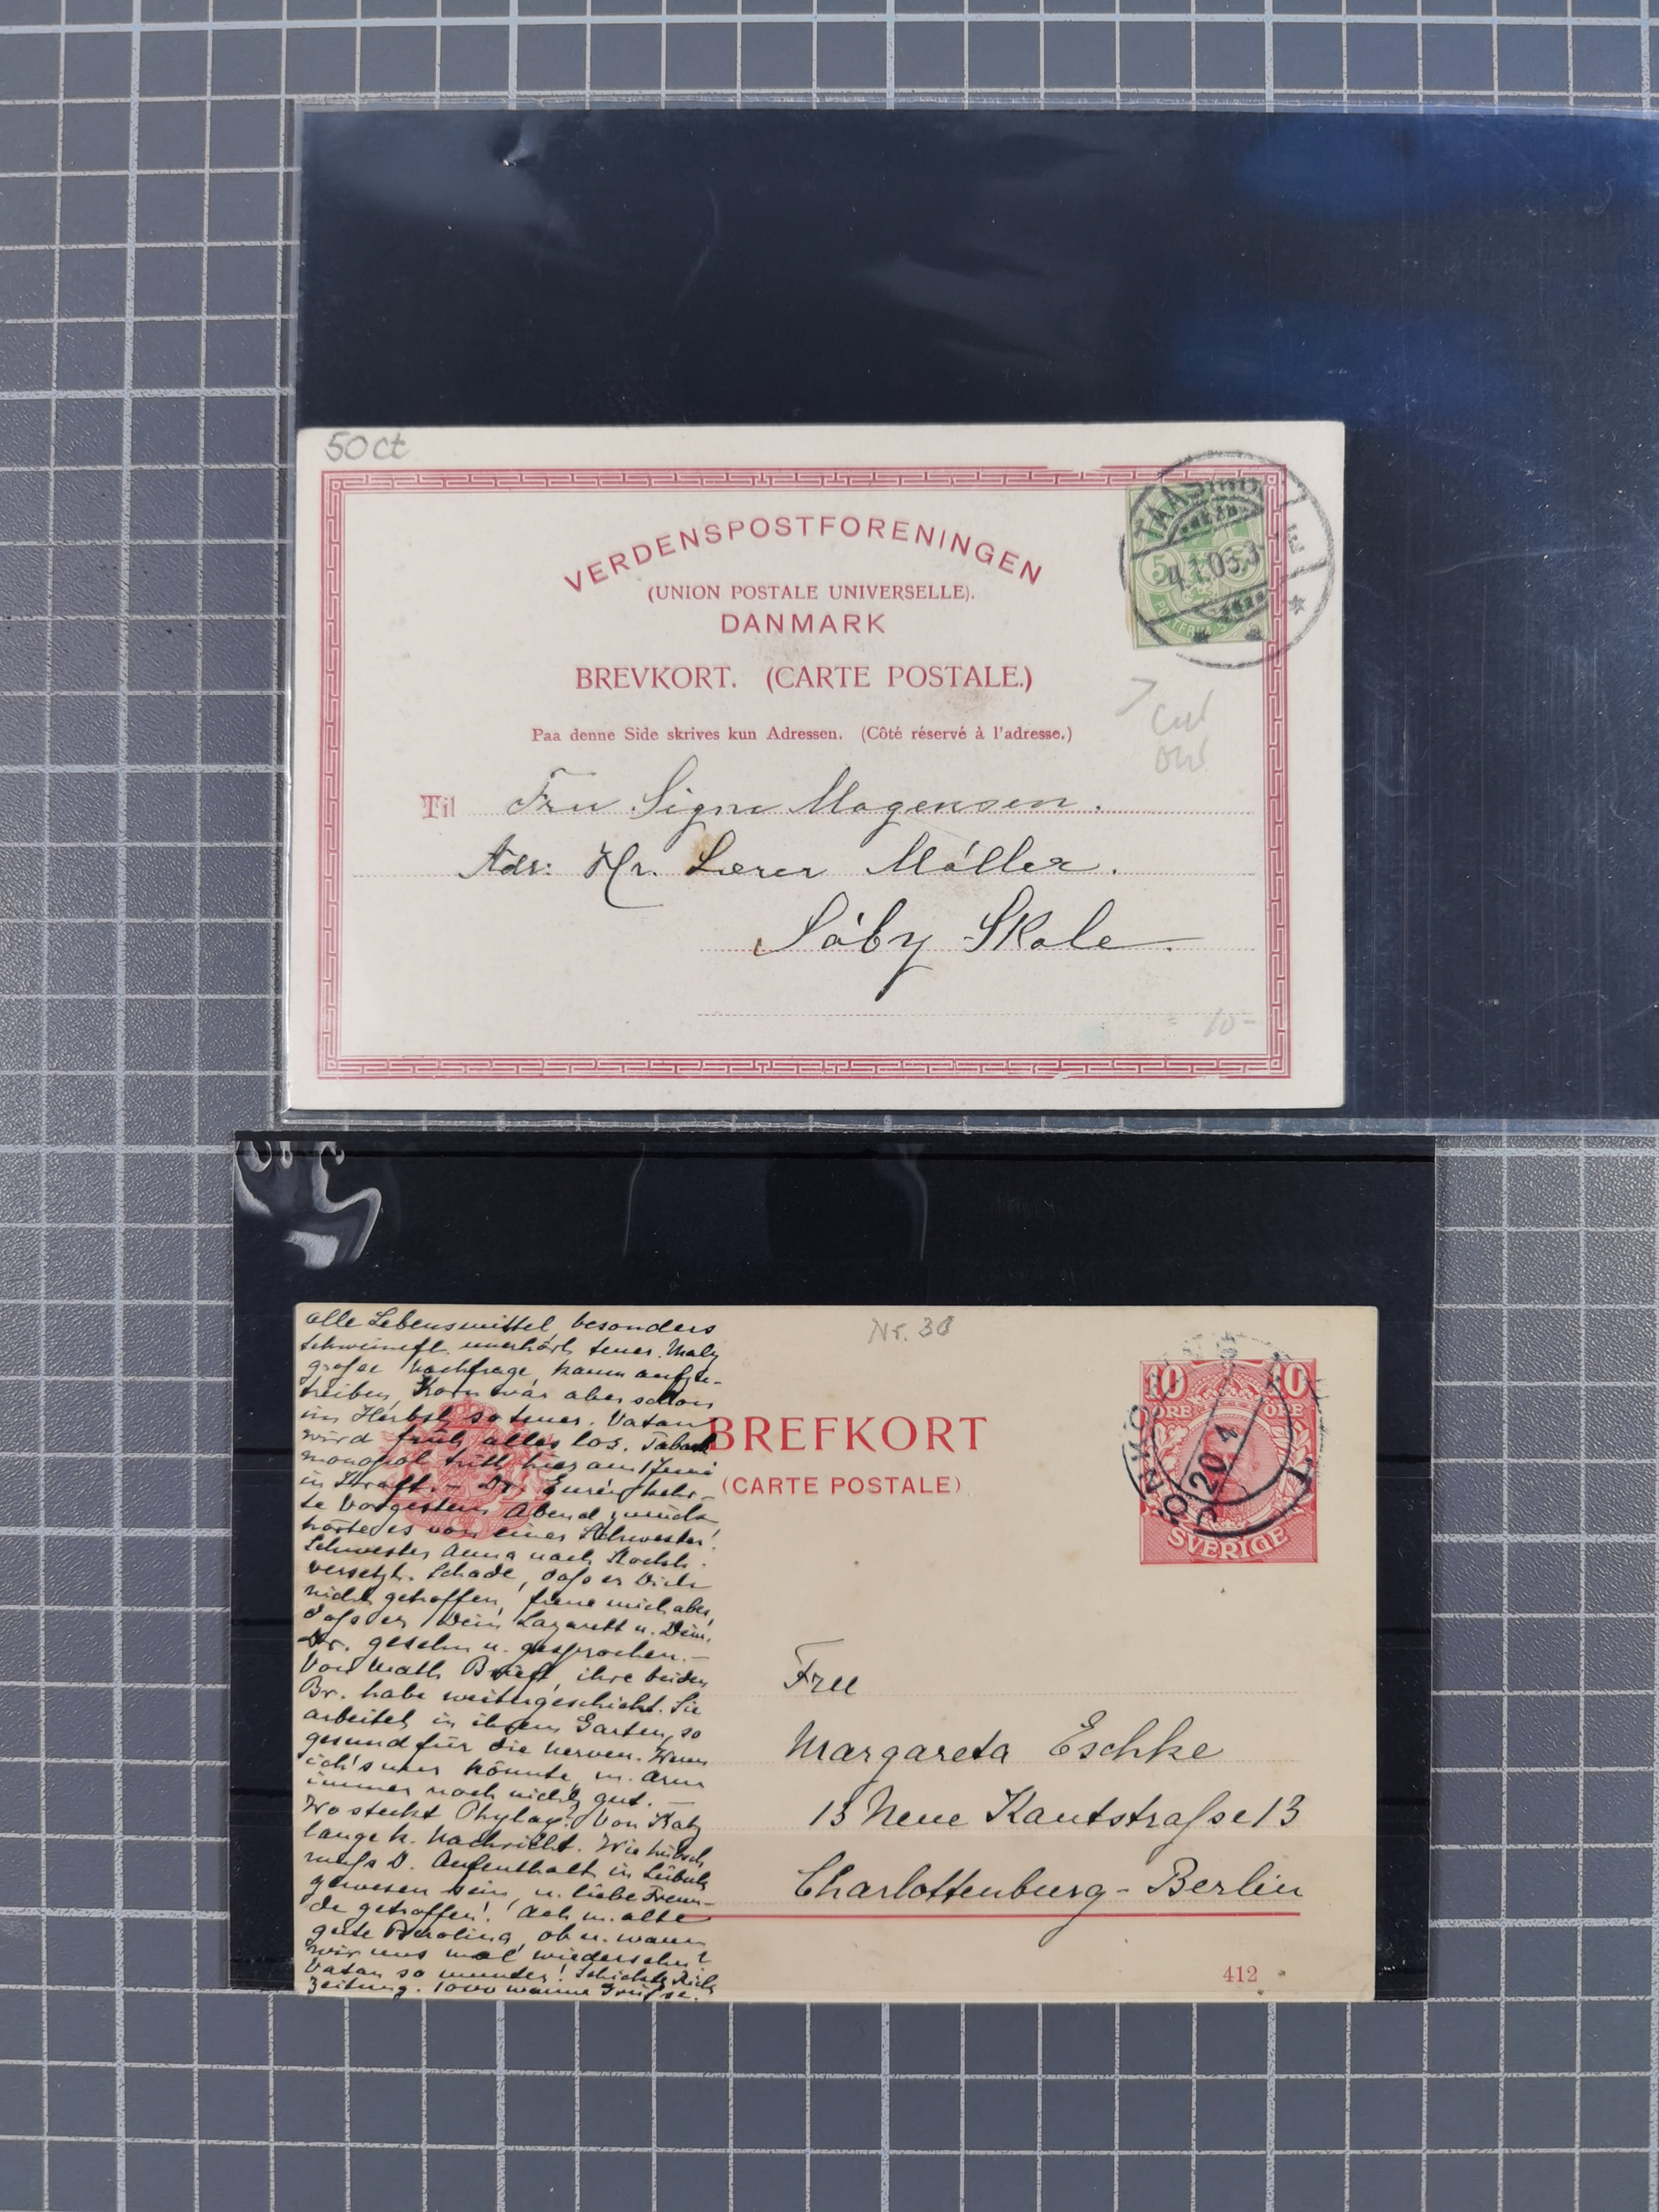 50ct
VERDENSPOSTFORENINGEN
(UNION POSTALE UNIVERSELLE).
DANMARK
BREVKORT. (CARTE POSTALE.)
Paa denne Side skrives kun Adressen. (Côté réservé à l'adresse.)
5
4.1.03.
cut
out
Til Fru Signe Mogensen.
Adr: Hr. Lærer Møller.
Søby Skole.
10-
Nr. 30
alle Lebensmittel besonders
unerhört teuer.
große Nachfrage, kaum aufzu-
treiben, Korn war aber schon
im Herbst so teuer. Vatan
wird früh alles los. Tabak
monopol tritt hier am 1 Juni
in Kraft. – Dr.
te Vorgestern Abend,
hörte es von einer Schwester!
Schwester Anna nach Stockh.
versetzt. Schade, daß er Dich
nicht getroffen, freue mich aber,
daß er Dein Lazarett u. Dein.
Dr. gesehn u. gesprochen. –
Von Math Brief, ihre beiden
Br. habe weitergeschickt. Sie
arbeitet in ihrem Garten, so
gesund für die Nerven. Wenn
ich's nur könnte, m. Arm
immer noch nicht gut. –
Wo steckt Von
lange k. Nachricht. Wie hübsch
muß D. Aufenthalt in
gewesen sein, u. liebe Freun-
de getroffen! Ach m. alte
gute Berolina, ob u. wann
wir uns mal wiedersehn?
Vatan so munter! Schickte Dich
Zeitung. 1000 warme Grüße.
BREFKORT
(CARTE POSTALE)
10 10
ÖRE ÖRE
20 4
1
SVERIGE
Frau
Margareta Eschke
13 Neue Kantstraße 13
Charlottenburg - Berlin
412